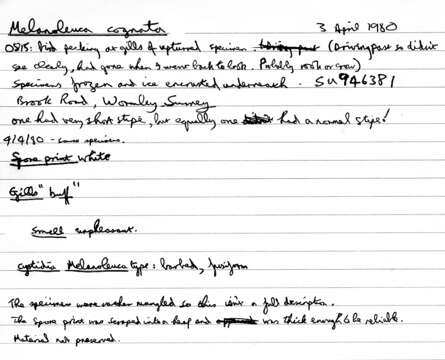 Melanoleuca cognata 3 April 1980
0815: bird pecking at gills of upturned specimen. (Driving past so didn't
see clearly, had gone when I went back to look. Probably rook or crow)
Specimens frozen and ice encrusted underneath. SU946381
Brook Road, Wormley Surrey
one had very short stipe, but equally one had a normal stipe!
4/4/80 - same specimens.
Spore print white
Gills "buff"
Smell unpleasant.
Cystidia Melanoleuca type: barbed, fusiform
The specimens were rather mangled so this isn't a full description.
The spore print was scraped into a heap and was thick enough to be reliable.
Material not preserved.